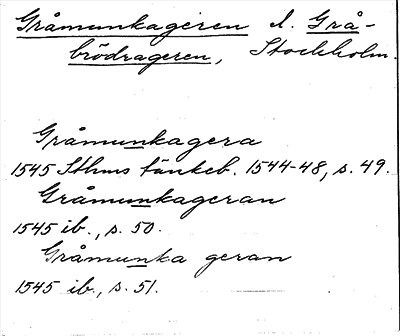 Gråmunkageren l. Grå-
brödrageren, Stockholm.
Gråmunkagera
1545 Sthms tänkeb. 1544-48, s. 49.
Gråmunkageran
1545 ib., s. 50.
Gråmunka geran
1545 ib., s. 51.